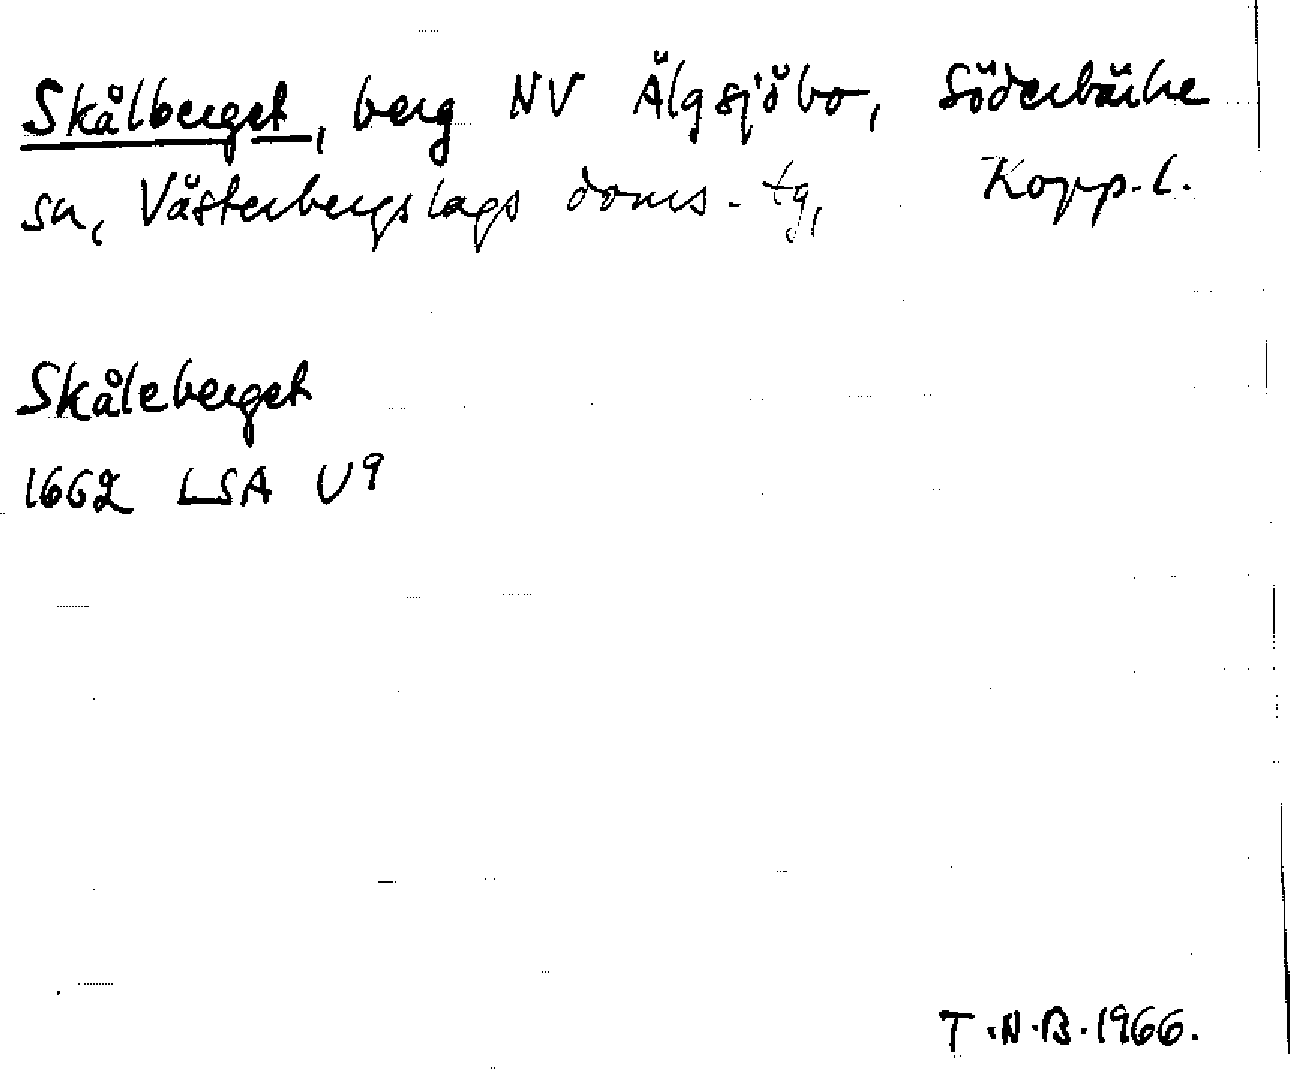 Skålberget, berg NV Älgsjöbo, Söderbärke
sn, Västerbergslags doms. tg, Kopp. l.
Skåleberget
1662 LSA U9
T.N.B. 1966.